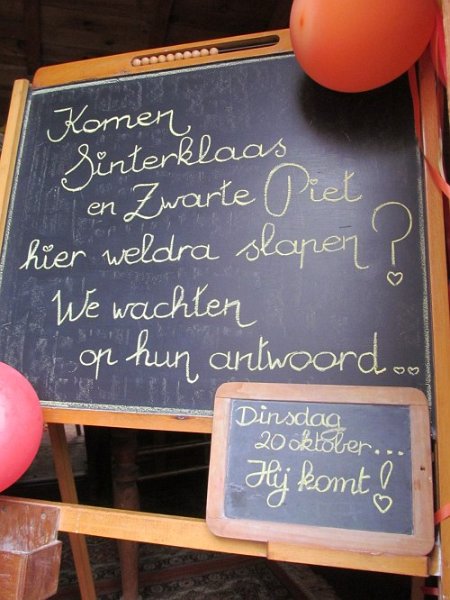 Komen
Sinterklaas
en Zwarte Piet
hier weldra slapen?
We wachten
op hun antwoord...
Dinsdag
20 oktober...
Hij komt!